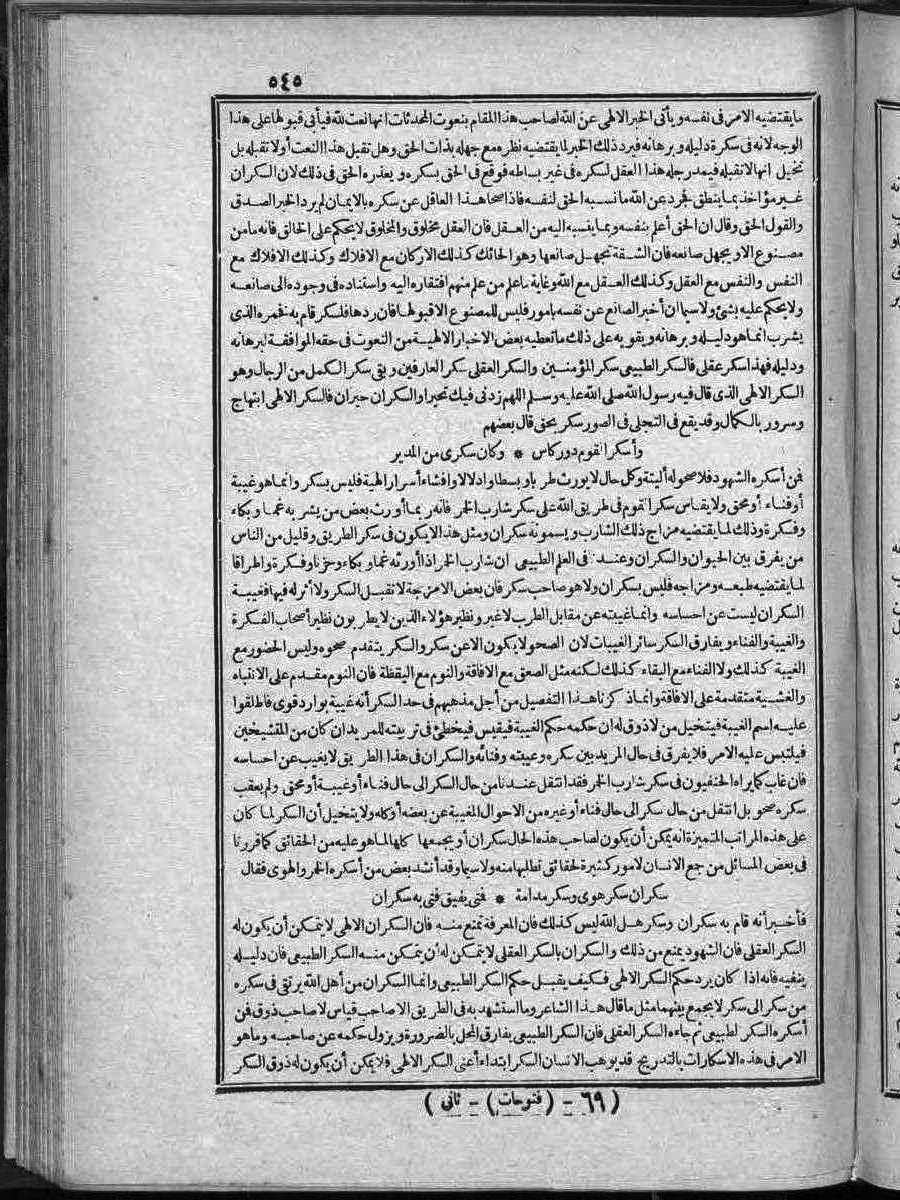 ٥٤٥
ما يقتضيه الامر فى نفسه ويأتى الخبر الالهى عن الله لصاحب هذا المقام بنعوت المحدثات انها نعت لله فيأبى قبولها على هذا
الوجه لانه فى سكرة دليله وبرهانه فيرد ذلك الخبر لما يقتضيه نظره مع جهله بذات الحق وهل تقبل هذا النعت أولا تقبله بل
تخيل انها لا تقبله فيمد رجله هذا العقل لسكره فى غير بساطه فوقع فى الحق بسكره ويعذره الحق فى ذلك لان السكران
غير مؤاخذ بما ينطق فجرد عن الله ما نسبه الحق لنفسه فاذا صحا هذا العاقل عن سكره بالايمان لم يرد الخبر الصدق
والقول الحق وقال ان الحق أعلم بنفسه وبما ينسبه اليه من العقل فان العقل مخلوق والمخلوق لا يحكم على الخالق فانه ما من
مصنوع الا ويجهل صانعه فان الشقة تجهل صانعها وهو الحائك كذلك الاركان مع الافلاك وكذلك الافلاك مع
النفس والنفس مع العقل وكذلك العقل مع الله وغاية ما علم من علم منهم افتقاره اليه واستناده فى وجوده الى صانعه
ولا يحكم عليه بشئ ولا سيما ان أخبر الصانع عن نفسه بامور فليس للمصنوع الا قبولها فان ردها فلسكر قام به فخمره الذى
يشرب انما هو دليله وبرهانه ويقويه على ذلك ما تعطيه بعض الاخبار الالهية من النعوت فى حقه الموافقة لبرهانه
ودليله فهذا سكر عقلى فالسكر الطبيعى سكر المؤمنين والسكر العقلى سكر العارفين وبقى سكر الكمل من الرجال وهو
السكر الالهى الذى قال فيه رسول الله صلى الله عليه وسلم اللهم زدنى فيك تحيرا والسكران حيران فالسكر الالهى ابتهاج
وسرور بالكمال وقد يقع فى التجلى فى الصور سكر بحق قال بعضهم
وأسكر القوم دور كاس * وكان سكرى من المدير
فمن أسكره الشهود فلا صحو له ألبتة وكل حال لا يورث طربا وبسطا وادلالا وافشاء أسرار الهية فليس بسكر وانما هو غيبة
أو فناء أو محق ولا يقاس سكر القوم فى طريق الله على سكر شارب الخمر فانه ربما أورث بعض من يشربه غما وبكاء
وفكرة وذلك لما يقتضيه مزاج ذلك الشارب ويسمونه سكران ومثل هذا لا يكون فى سكر الطريق وقليل من الناس
من يفرق بين الحيوان والسكران وعند فى العلم الطبيعى ان شارب الخمر اذا أورثه غما وبكاء وحزنا وفكرة واطراقا
لما يقتضيه طبعه ومزاجه فليس بسكران ولا هو صاحب سكر فان بعض الامزجة لا تقبل السكر ولا أثر له فيها فغيبة
السكران ليست عن احساسه وانما غيبته عن مقابل الطرب لا غير ونظير هؤلاء الذين لا يطربون نظير أصحاب الفكرة
والغيبة والفناء ويفارق السكر سائر الغيبات لان الصحو لا يكون الا عن سكر والسكر يتقدم صحوه وليس الحضور مع
الغيبة كذلك ولا الفناء مع البقاء كذلك لكنه مثل الصعق مع الافاقة والنوم مع اليقظة فان النوم مقدم على الانتباه
والغشية متقدمة على الافاقة وانما ذكرنا هذا التفصيل من أجل مذهبهم فى حد السكر أنه غيبة بوارد قوى فاطلقوا
عليه اسم الغيبة فيتخيل من لا ذوق له ان حكمه حكم الغيبة فيقيس فيخطئ فى تربيته للمريد ان كان من المتشيخين
فيلتبس عليه الامر فلا يفرق فى حال المريد بين سكره وغيبته وفنائه والسكران فى هذا الطريق لا يغيب عن احساسه
فان غاب كما يراه الحنفيون فى سكر شارب الخمر فقد انتقل عندنا من حال السكر الى حال فناء أو غيبة أو محق ولم يعقب
سكره صحو بل انتقل من حال سكر الى حال فناء أو غيره من الاحوال المغيبة عن بعضه أو كله ولا يتخيل أن السكر لما كان
على هذه المراتب المتميزة انه يمكن أن يكون لصاحب هذه الحال سكران أو يجمعها كلها لما هو عليه من الحقائق كما قررنا
فى بعض المسائل من جمع الانسان لامور كثيرة لحقائق تطلبها منه ولا سيما وقد أنشد بعض من أسكره الخمر والهوى فقال
سكران سكر هوى وسكر مدامة * فمتى يفيق فتى به سكران
فأخبر أنه قام به سكران وسكر أهل الله ليس كذلك فان المعرفة تمنع منه فان السكران الالهى لا يتمكن أن يكون له
السكر العقلى فان الشهود يمنع من ذلك والسكران بالسكر العقلى لا يتمكن له أن يتمكن منه السكر الطبيعى فان دليله
ينفيه فانه اذا كان يرد حكم السكر الالهى فكيف يقبل حكم السكر الطبيعى وانما السكران من أهل الله يرتقى فى سكره
من سكر الى سكر لا يجمع بينهما مثل ما قال هذا الشاعر وما استشهد به فى الطريق الا صاحب قياس لا صاحب ذوق فمن
أسكره السكر الطبيعى ثم جاءه السكر العقلى فان السكر الطبيعى يفارق المحل بالضرورة ويزول حكمه عن صاحبه وما هو
الامر فى هذه الاسكارات بالتدريج قد يوهب الانسان السكر ابتداء أعنى السكر الالهى فلا يمكن أن يكون له ذوق السكر
(٦٩ - (فتوحات) - ثانى)